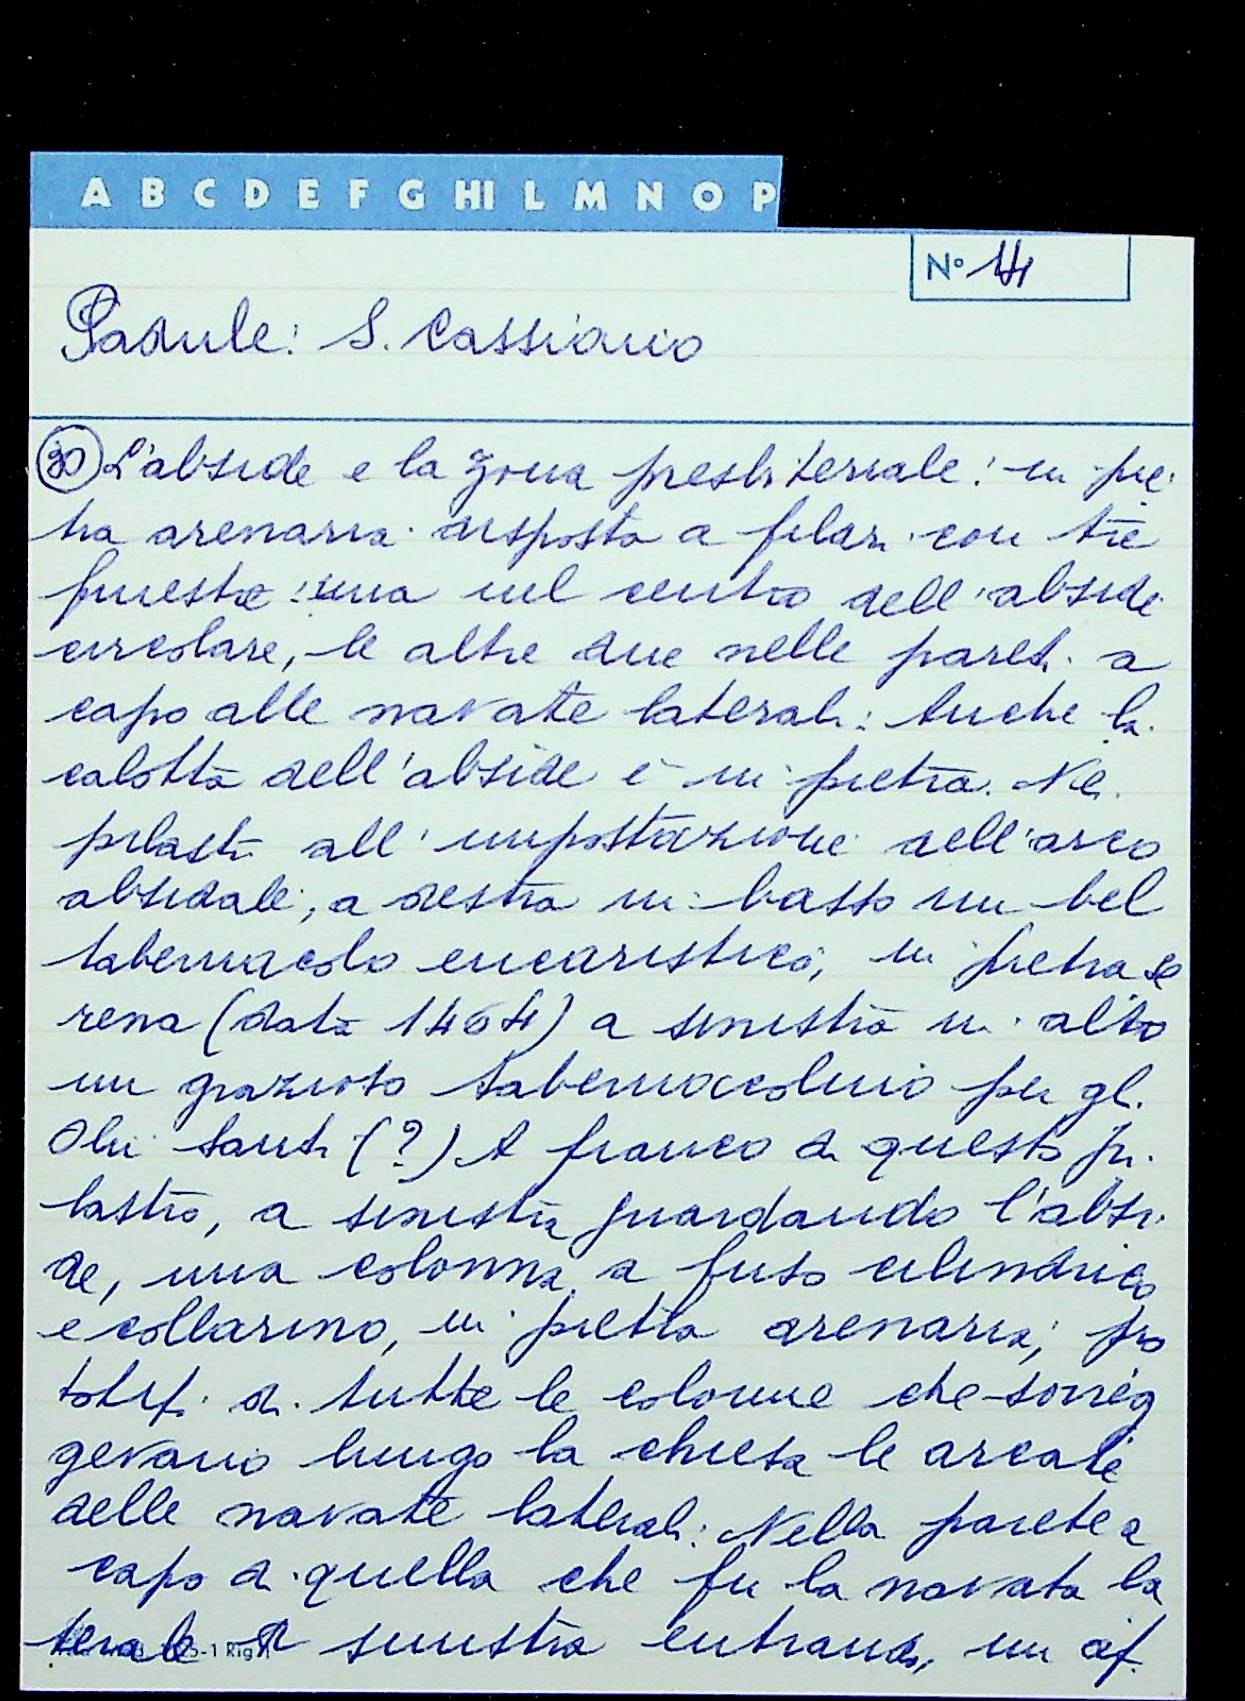 A B C D E F G HI L M N O P
N° 14
Padule: S. Cassiano
30 L'abside e la zona presbiteriale: in pie
tra arenaria disposta a filari con tre
finestre: una nel centro dell'abside
circolare, le altre due nelle pareti a
capo alle navate laterali. Anche la
calotta dell'abside è in pietra. Nei
pilastri all'impostazione dell'arco
absidale, a destra in basso un bel
tabernacolo eucaristico, in pietra se
rena (data 1464) a sinistra in alto
un grazioso tabernacolino per gli
Olii Santi (?) A fianco di questo pi
lastro, a sinistra guardando l'absi
de, una colonna a fuso cilindrico
e collarino, in pietra arenaria, pro
totipi di tutte le colonne che sorreg
gevano lungo la chiesa le arcate
delle navate laterali. Nella parete a
capo di quella che fu la navata la
terale a sinistra entrando, un af